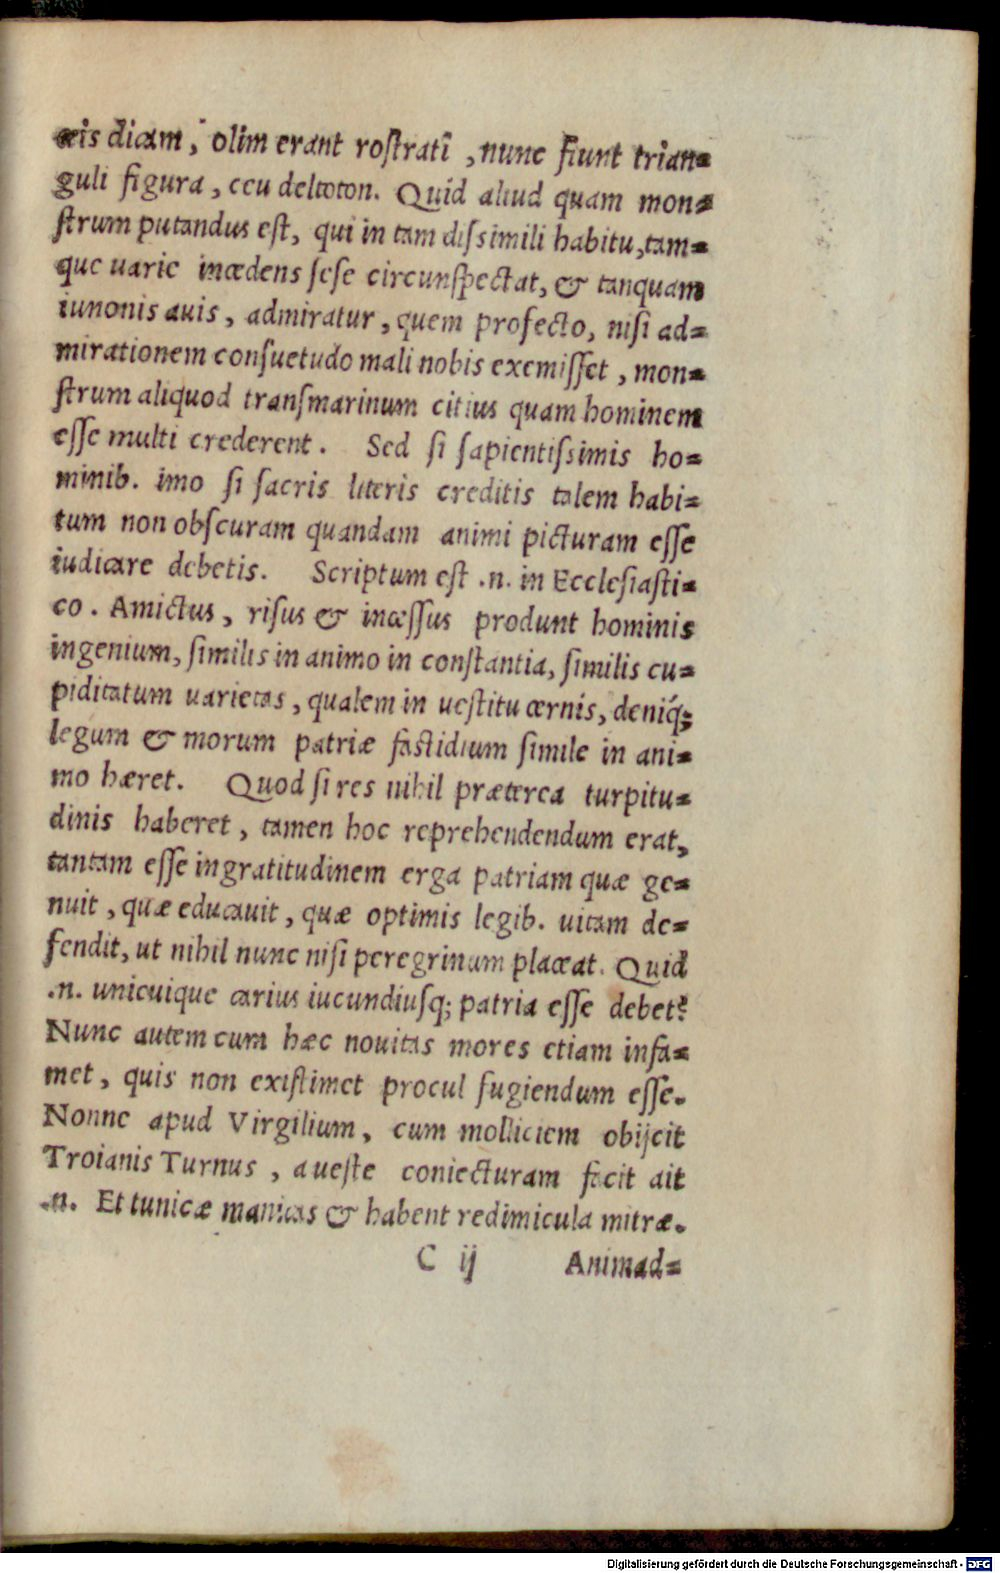 ceis dicam, olim erant rostrati, nunc fiunt trian=
guli figura, ceu deltoton. Quid aliud quam mon=
strum putandus est, qui in tam dissimili habitu, tam=
que uarie incedens sese circunspectat, & tanquam
iunonis auis, admiratur, quem profecto, nisi ad=
mirationem consuetudo mali nobis exemisset, mon=
strum aliquod transmarinum citius quam hominem
esse multi crederent. Sed si sapientissimis ho=
minib. imo si sacris literis creditis talem habi=
tum non obscuram quandam animi picturam esse
iudicare debetis. Scriptum est .n. in Ecclesiasti=
co. Amictus, risus & incessus produnt hominis
ingenium, similis in animo in constantia, similis cu=
piditatum uarietas, qualem in uestitu cernis, deniq́;
legum & morum patriæ fastidium simile in ani=
mo hæret. Quod si res nihil præterea turpitu=
dinis haberet, tamen hoc reprehendendum erat,
tantam esse ingratitudinem erga patriam quæ ge=
nuit, quæ educauit, quæ optimis legib. uitam de=
fendit, ut nihil nunc nisi peregrinum placeat. Quid
.n. unicuique carius iucundiusq; patria esse debet?
Nunc autem cum hæc nouitas mores etiam infa=
met, quis non existimet procul fugiendum esse.
Nonne apud Virgilium, cum molliciem obijcit
Troianis Turnus, a ueste coniecturam facit ait
.n. Et tunicæ manicas & habent redimicula mitræ.
C ij Animad=
Digitalisierung gefördert durch die Deutsche Forschungsgemeinschaft - DFG